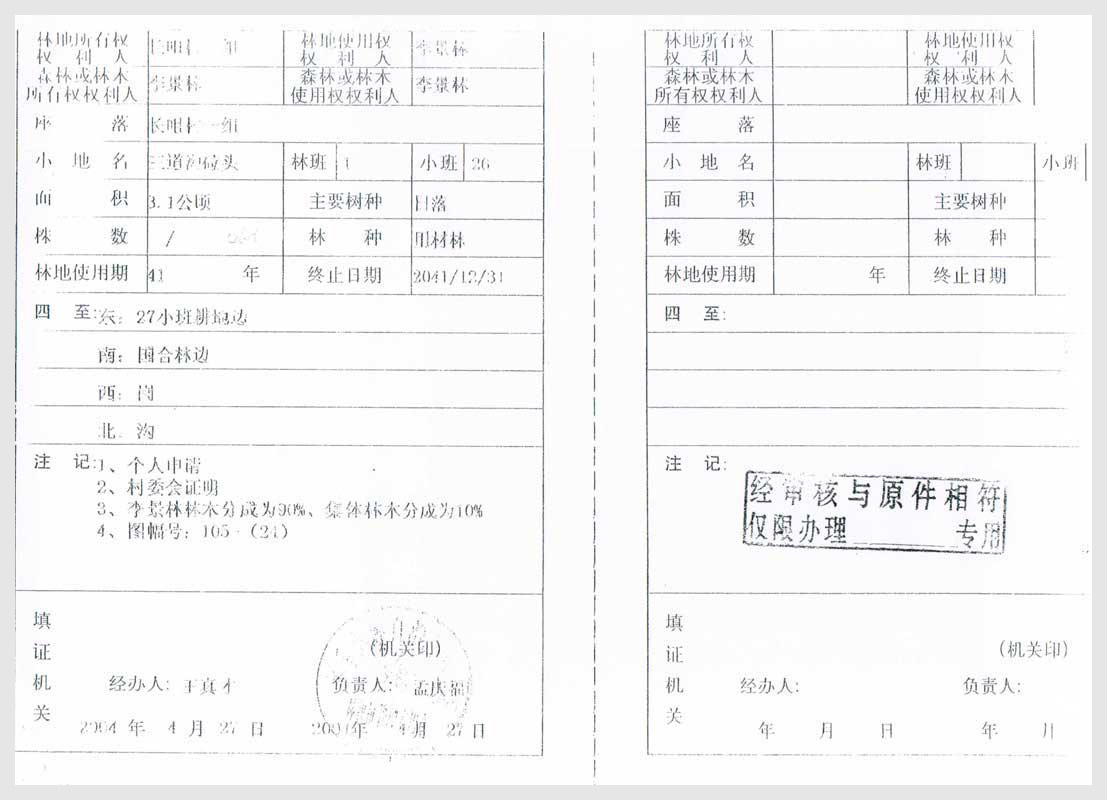 林地所有权
权 利 人
林地使用权
权 利 人
李景林
森林或林木
所有权权利人
李景林
森林或林木
使用权权利人
李景林
座 落
一组
小 地 名
三道沟
林班 1
小班 26
面 积
3.1公顷
主要树种
株 数
/
林 种
用材林
林地使用期
41 年
终止日期
2041/12/31
四 至:
东: 27小班耕地边
南: 国合林边
西: 岗
北: 沟
注 记:
1、个人申请
2、村委会证明
3、李景林林木分成为90%、集体林木分成为10%
4、图幅号: 105-(24)
填证机关
(机关印)
经办人:
负责人: 孟庆福
2004 年 4 月 27 日
2004年 4月 27 日
林地所有权
权 利 人
林地使用权
权 利 人
森林或林木
所有权权利人
森林或林木
使用权权利人
座 落
小 地 名
林班
小班
面 积
主要树种
株 数
林 种
林地使用期
年
终止日期
四 至:
注 记:
经审核与原件相符
仅限办理 专用
填证机关
(机关印)
经办人:
负责人:
年 月 日
年 月